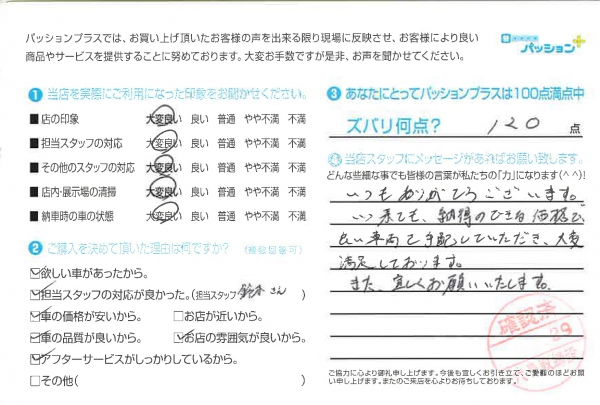 パッションプラスでは、お買い上げ頂いたお客様の声を出来る限り現場に反映させ、お客様により良い
商品やサービスを提供することに努めております。大変お手数ですが是非、お声を聞かせてください。
パッション
1 当店を実際にご利用になった印象をお聞かせください。
■店の印象 大変良い 良い 普通 やや不満 不満
■担当スタッフの対応 大変良い 良い 普通 やや不満 不満
■その他のスタッフの対応 大変良い 良い 普通 やや不満 不満
■店内・展示場の清掃 大変良い 良い 普通 やや不満 不満
■納車時の車の状態 大変良い 良い 普通 やや不満 不満
2 ご購入を決めて頂いた理由は何ですか? (複数回答可)
☑欲しい車があったから。
☑担当スタッフの対応が良かった。(担当スタッフ 鈴木さん)
☑車の価格が安いから。 □お店が近いから。
☑車の品質が良いから。 ☑お店の雰囲気が良いから。
☑アフターサービスがしっかりしているから。
□その他( )
3 あなたにとってパッションプラスは100点満点中
ズバリ何点? 120 点
4 当店スタッフにメッセージがあればお願い致します。
どんな些細な事でも皆様の言葉が私たちの「力」になります(^^)!
いつもありがとうございます。
いつ来ても、納得のできる価格で、
良い車両を手配していただき、大変
満足しております。
また、宜しくお願いいたします。
確認済
29
ご協力に心より御礼申し上げます。今後も宜しくお引き立て、ご愛顧のほどお願
い申し上げます。またのご来店を心よりお待ちしております。